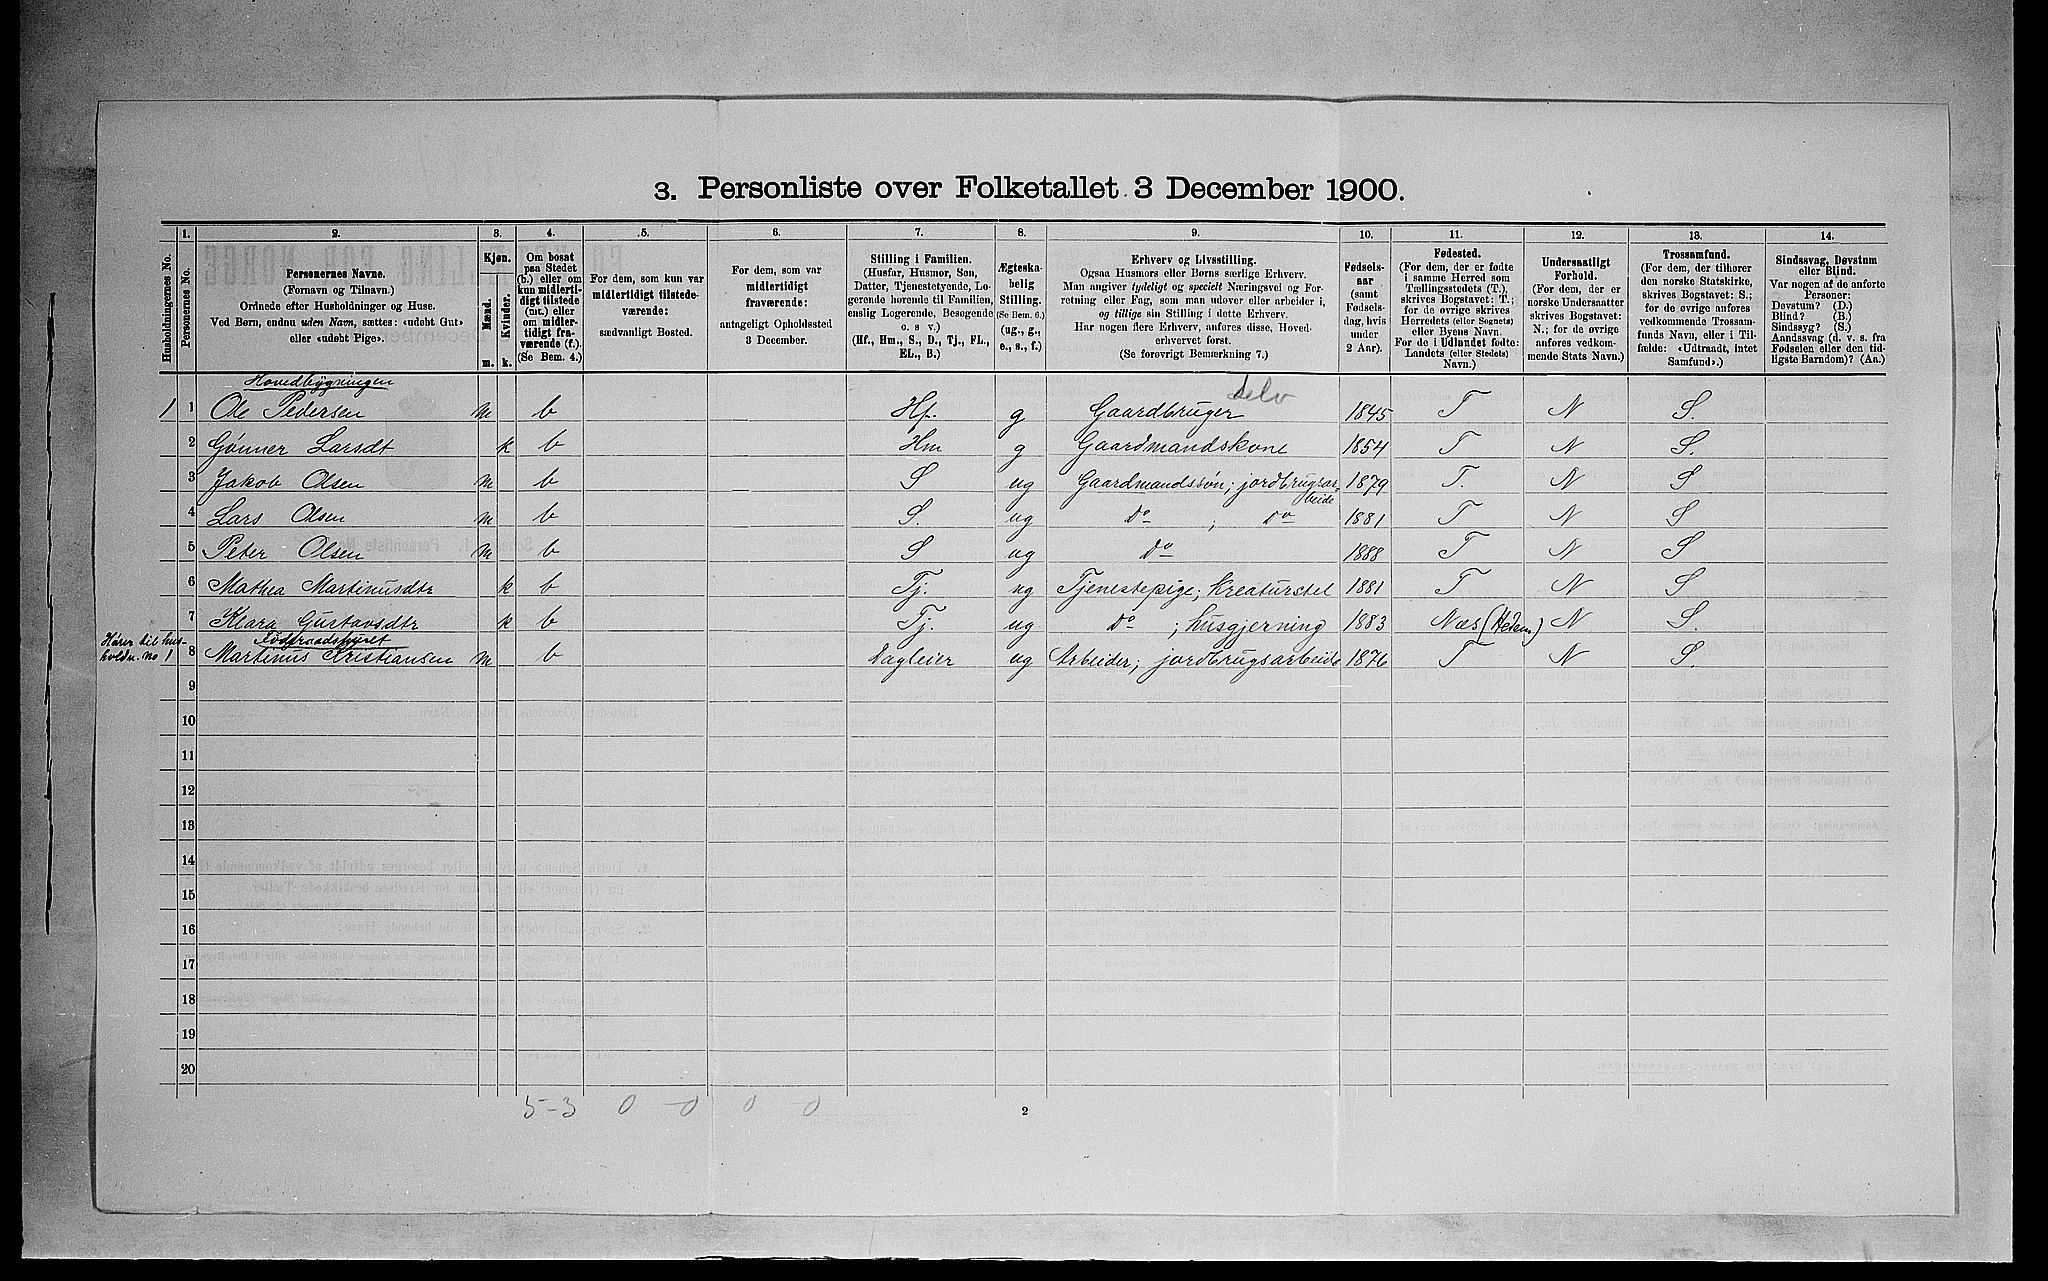 3. Personliste over Folketallet 3 December 1900.
1. 2. 3. 4. 5. 6. 7. 8. 9. 10. 11. 12. 13. 14.
Husholdningernes No.
Personernes No.
Personernes Navne.
(Fornavn og Tilnavn.)
Ordnede efter Husholdninger og Huse.
Ved Børn, endnu uden Navn, sættes: «udøbt Gut»
eller «udøbt Pige».
Kjøn.
Mænd.
Kvinder.
m. k.
Om bosat
paa Stedet
(b.) eller om
kun midlerti-
digt tilstede
(mt.) eller
om midler-
tidigt fra-
værende (f.).
(Se Bem. 4.)
For dem, som kun var
midlertidigt tilstede-
værende:
sædvanligt Bosted.
For dem, som var
midlertidigt
fraværende:
antageligt Opholdssted
3 December.
Stilling i Familien.
(Husfar, Husmor, Søn,
Datter, Tjenestetyende, Lo-
gerende hørende til Familien,
enslig Logerende, Besøgende
o. s v.)
(Hf., Hm., S., D., Tj., FL.,
EL., B.)
Ægteska-
belig
Stilling.
(Se Bem. 6.)
(ug., g.,
e., s., f.)
Erhverv og Livsstilling.
Ogsaa Husmors eller Børns særlige Erhverv.
Man angiver tydeligt og specielt Næringsvei og For-
retning eller Fag, som man udøver eller arbeider i,
og tillige sin Stilling i dette Erhverv.
Har nogen flere Erhverv, anføres disse, Hoved-
erhvervet først.
(Se forøvrigt Bemærkning 7.)
Fødsels-
aar
(samt
Fødsels-
dag, hvis
under
2 Aar).
Fødested.
(For dem, der er fødte
i samme Herred som
Tællingsstedets (T.),
skrives Bogstavet: T.;
for de øvrige skrives
Herredets (eller Sognets)
eller Byens Navn.
For de i Udlandet fødte:
Landets (eller Stedets)
Navn.)
Undersaatligt
Forhold.
(For dem, der er
norske Undersaatter
skrives Bogstavet:
N.; for de øvrige
anføres vedkom-
mende Stats Navn.)
Trossamfund.
(For dem, der tilhører
den norske Statskirke,
skrives Bogstavet: S.;
for de øvrige anføres
vedkommende Trossam-
funds Navn, eller i Til-
fælde: «Udtraadt, intet
Samfund».)
Sindssvag, Døvstum
eller Blind.
Var nogen af de anførte
Personer:
Døvstum? (D.)
Blind? (B.)
Sindssyg? (S.)
Aandssvag (d. v. s. fra
Fødselen eller den tid-
ligste Barndom)? (Aa.)
Hovedbygningen
Selv
1 1 Ole Pedersen m b Hf. g Gaardbruger 1845 T N S.
2 Gønner Larsdt k b Hm g Gaardmandskone 1854 T N S.
3 Jakob Olsen m b S ug Gaardmandssøn; jordbrugsar-
beide 1879 T. N S
4 Lars Olsen m b S. ug do ; do 1881 T N S
5 Peter Olsen m b S ug do 1888 T N S
6 Mathea Martinusdtr k b Tj. ug Tjenestepige; Kreaturstel 1881 T N S
7 Klara Gustavsdtr k b Tj. ug do ; husgjerning 1883 Næs (Hedem.) N S.
Hører til hus-
holdn. no 1
Födraadshuset
8 Martinus Kristiansen m b Dagleier ug Arbeider; jordbrugsarbeide 1876 T N S.
9
10
11
12
13
14
15
16
17
18
19
20
5-3 0 - 0 0 0
2